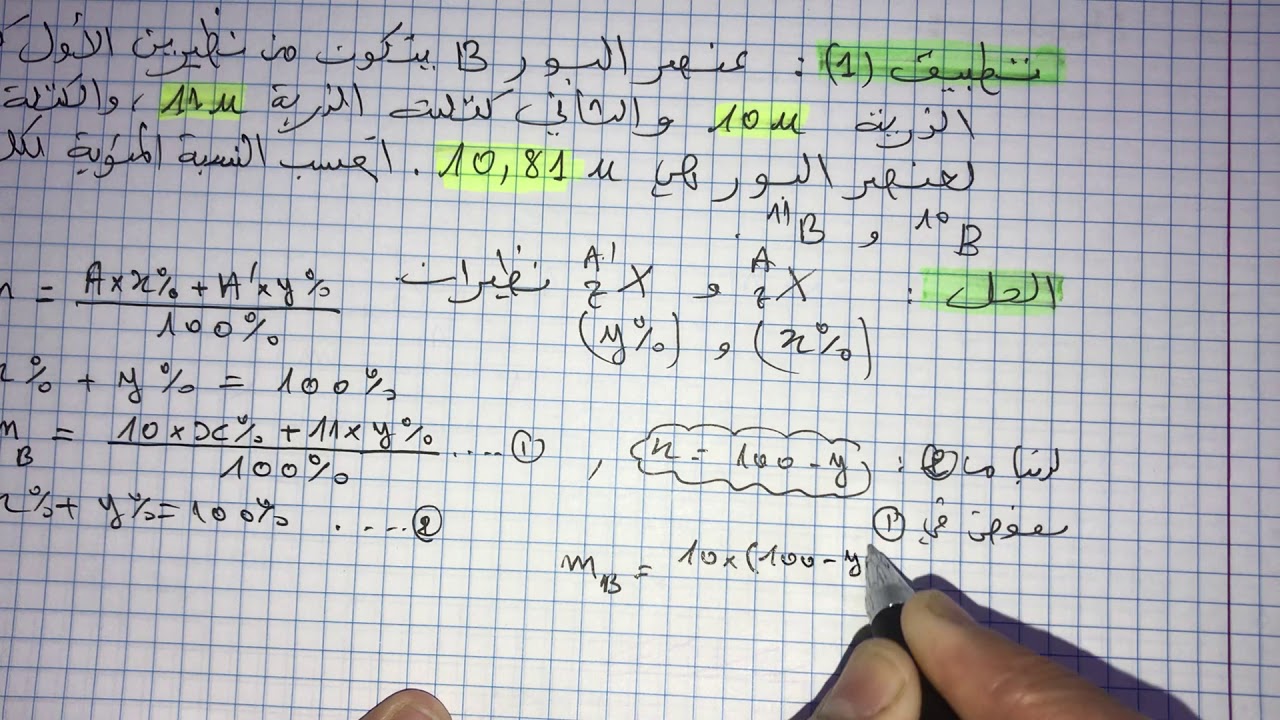 تطبيق (1) : عنصر البور B يتكون من نظيرين الأول
الذرية 10u والثاني كتلته الذرية 11u ، والكتلة
لعنصر البور هي 10,81 u . احسب النسبة المئوية لكل
¹⁰B و ¹¹B .
الحل :
ᴬ_Z X و ᴬ'_Z X نظيرات
(x%) و (y%)
= (A×x% + A'×y%) / 100%
x% + y% = 100%
m_B = (10×x% + 11×y%) / 100% .... ①
x% + y% = 100% .... ②
لدينا من ② : x = 100 - y ,
نعوض في ①
m_B = 10×(100-y